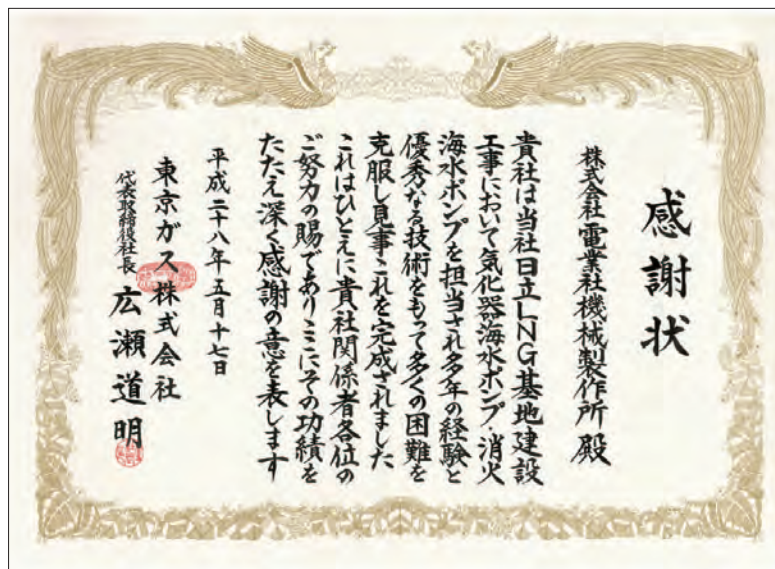 感謝状
株式会社電業社機械製作所殿
貴社は当社日立LNG基地建設
工事において気化器海水ポンプ・消火
海水ポンプを担当され多年の経験と
優秀なる技術をもって多くの困難を
克服し見事これを完成されました
これはひとえに貴社関係者各位の
ご努力の賜でありここにその功績を
たたえ深く感謝の意を表します
平成二十八年五月十七日
東京ガス株式会社
代表取締役社長 広瀬道明